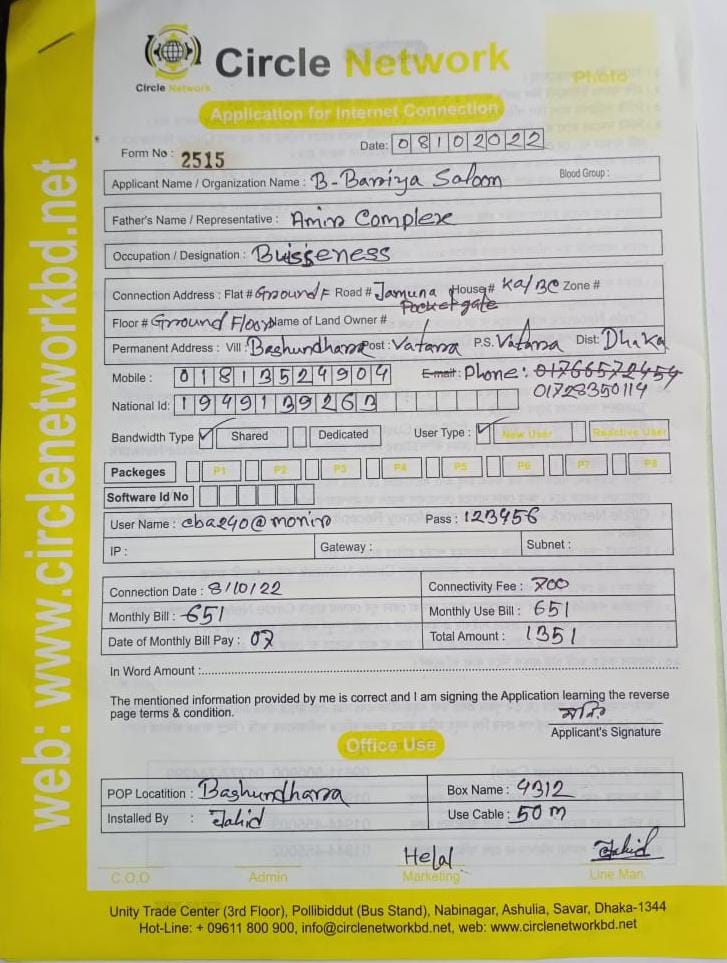 Circle Network
Circle Network
Photo
Application for Internet Connection
Form No : 2515
Date: 08102022
Applicant Name / Organization Name : B-Bariya Saloon Blood Group :
Father's Name / Representative : Amin Complex
Occupation / Designation : Buisseness
Connection Address : Flat # Ground F Road # Jamuna House# Ka/BC Zone #
Pocket gate
Floor # Ground Floor Name of Land Owner #
Permanent Address : Vill : Bashundhara Post : Vatara P.S. Vatara Dist: Dhaka
Mobile : 01813524904 E-mait : Phone : 01766572454
01728350114
National Id: 1949139263
Bandwidth Type Shared Dedicated User Type : New User Reactive User
Packeges P1 P2 P3 P4 P5 P6 P7 P8
Software Id No
User Name : cba240@monir Pass : 123456
IP : Gateway : Subnet :
Connection Date : 8/10/22 Connectivity Fee : 700
Monthly Bill : 651 Monthly Use Bill : 651
Date of Monthly Bill Pay : 07 Total Amount : 1351
In Word Amount :
The mentioned information provided by me is correct and I am signing the Application learning the reverse
page terms & condition.
মনির
Applicant's Signature
Office Use
POP Locatition : Bashundhara Box Name : 4312
Installed By : Jahid Use Cable : 50 m
Helal Jahid
C.O.O Admin Marketing Line Man
Unity Trade Center (3rd Floor), Pollibiddut (Bus Stand), Nabinagar, Ashulia, Savar, Dhaka-1344
Hot-Line: + 09611 800 900, info@circlenetworkbd.net, web: www.circlenetworkbd.net
web: www.circlenetworkbd.net